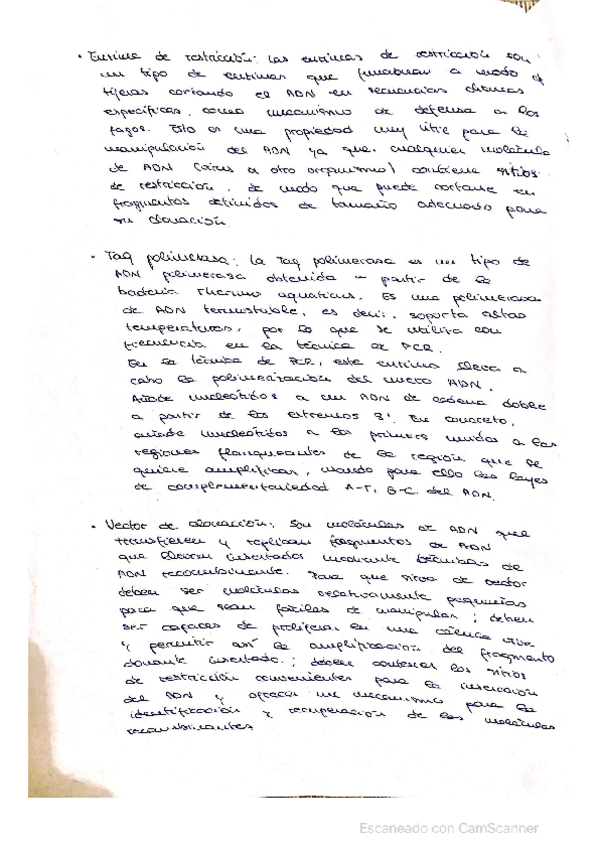 • Enzima de restricción: las enzimas de restricción son
un tipo de enzimas que funcionan a modo de
tijeras cortando el ADN en secuencias dianas
específicas, como mecanismo de defensa a los
fagos. Esto es una propiedad muy útil para la
manipulación del ADN ya que cualquier molécula
de ADN ( a otro organismo) contiene sitios
de restricción, de modo que puede cortarse en
fragmentos definidos de tamaño adecuado para
su clonación.
• Taq polimerasa: la Taq polimerasa es un tipo de
ADN polimerasa obtenida a partir de la
bacteria Thermo aquaticus. Es una polimerasa
de ADN termostable, es decir, soporta altas
temperaturas, por lo que se utiliza con
frecuencia en la técnica de PCR.
En la técnica de PCR, este enzima lleva a
cabo la polimerización del nuevo ADN.
Añade nucleótidos a un ADN de cadena doble
a partir de los extremos 3'. En concreto,
añade nucleótidos a los primers unidos a las
regiones flanqueantes de la región que se
quiere amplificar, usando para ello las leyes
de complementariedad A-T, G-C del ADN.
• Vector de clonación: son moléculas de ADN que
transfieren y replican fragmentos de ADN
que llevan insertados mediante técnicas de
ADN recombinante. Para que sirva de vector
deben ser moléculas relativamente pequeñas
para que sean fáciles de manipular; deben
ser capaces de prolifera en una célula viva
y permitir así la amplificación del fragmento
donante insertado; debere contener los sitios
de restricción convenientes para la inserción
del ADN y ofrecer un mecanismo para la
identificación y recuperación de las moléculas
recombinantes
Escaneado con CamScanner